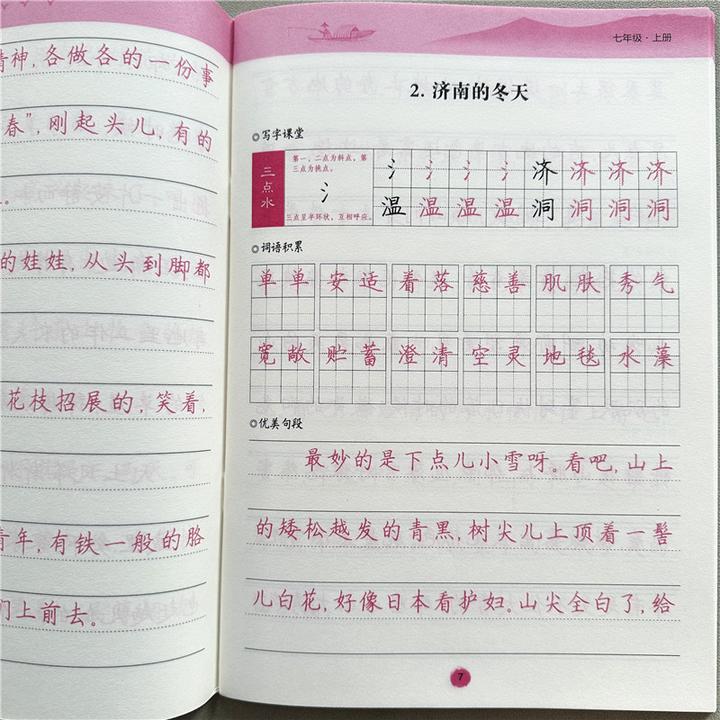 精神,各做各的一份事
春”,刚起头儿,有的
的娃娃,从头到脚都
花枝招展的,笑着,
青年,有铁一般的胳
们上前去。
七年级·上册
2. 济南的冬天
写字课堂
三点水
第一、二点为斜点,第
三点为挑点。
氵
三点呈半环状,互相呼应。
氵 氵 氵 氵 济 济 济 济
温 温 温 温 洞 洞 洞 洞
词语积累
单单 安适 着落 慈善 肌肤 秀气
宽敞 贮蓄 澄清 空灵 地毯 水藻
优美句段
最妙的是下点儿小雪呀。看吧,山上
的矮松越发的青黑,树尖儿上顶着一髻
儿白花,好像日本看护妇。山尖全白了,给
7